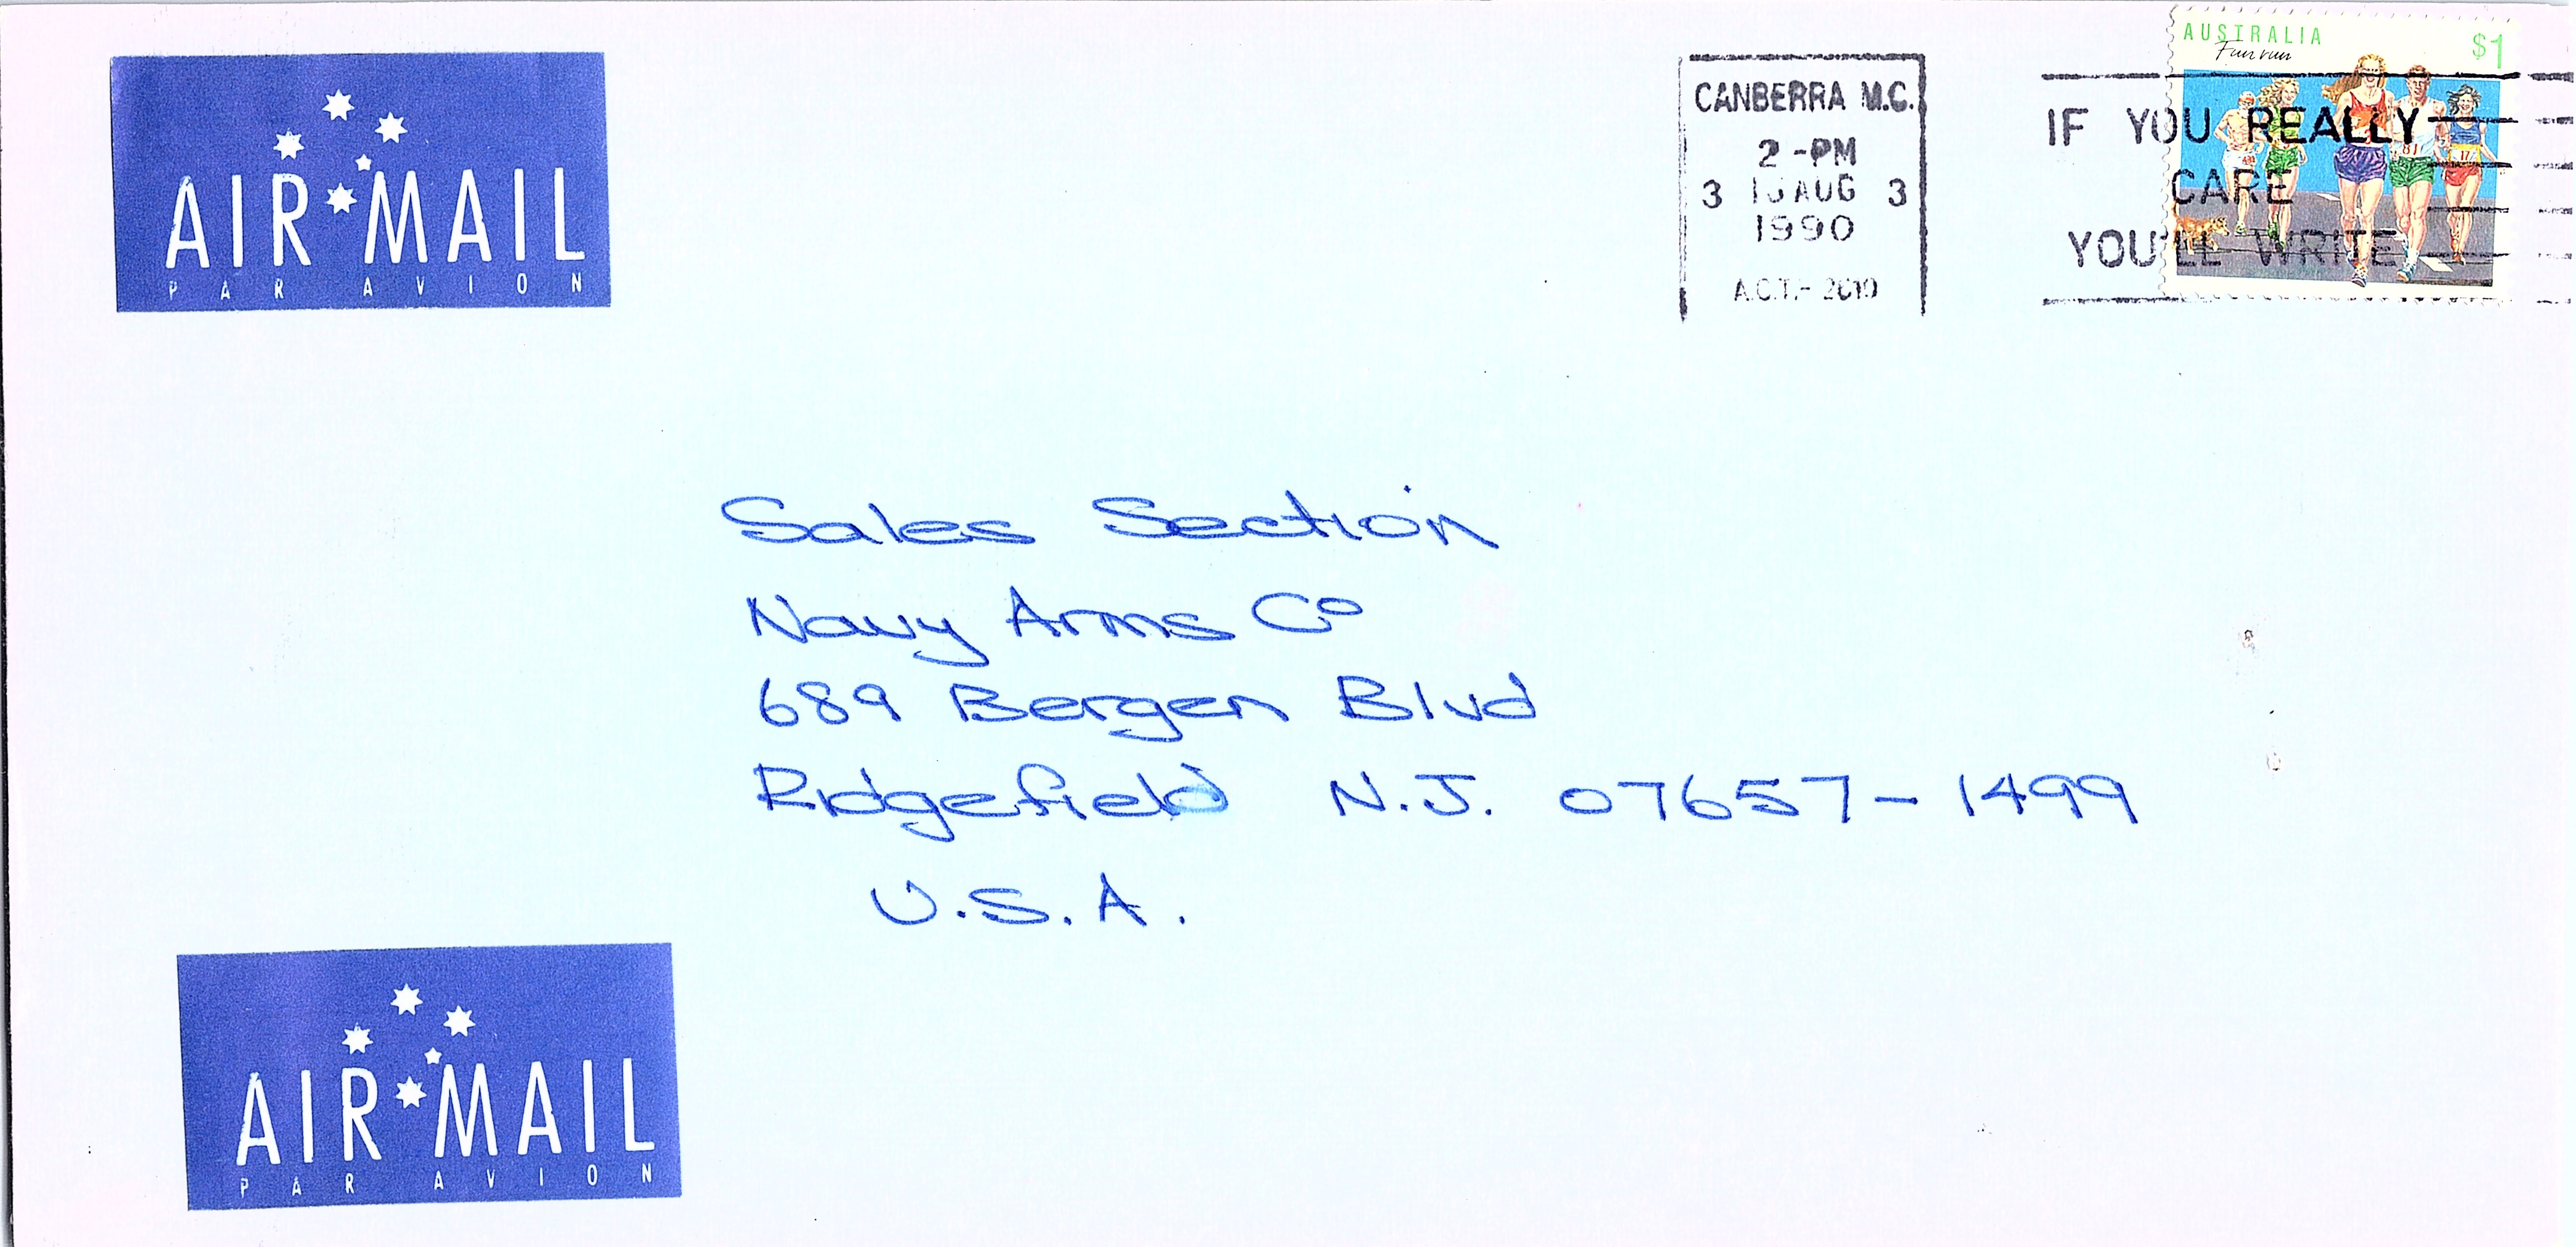 AIR MAIL
PAR AVION
CANBERRA M.C.
2 -PM
3 AUG 3
1990
A.C.T.-
AUSTRALIA
Fun run
$1
IF YOU REALLY
CARE
YOU'LL WRITE
Sales Section
Navy Arms Co
689 Bergen Blvd
Ridgefield N.J. 07657-1499
U.S.A.
AIR MAIL
PAR AVION